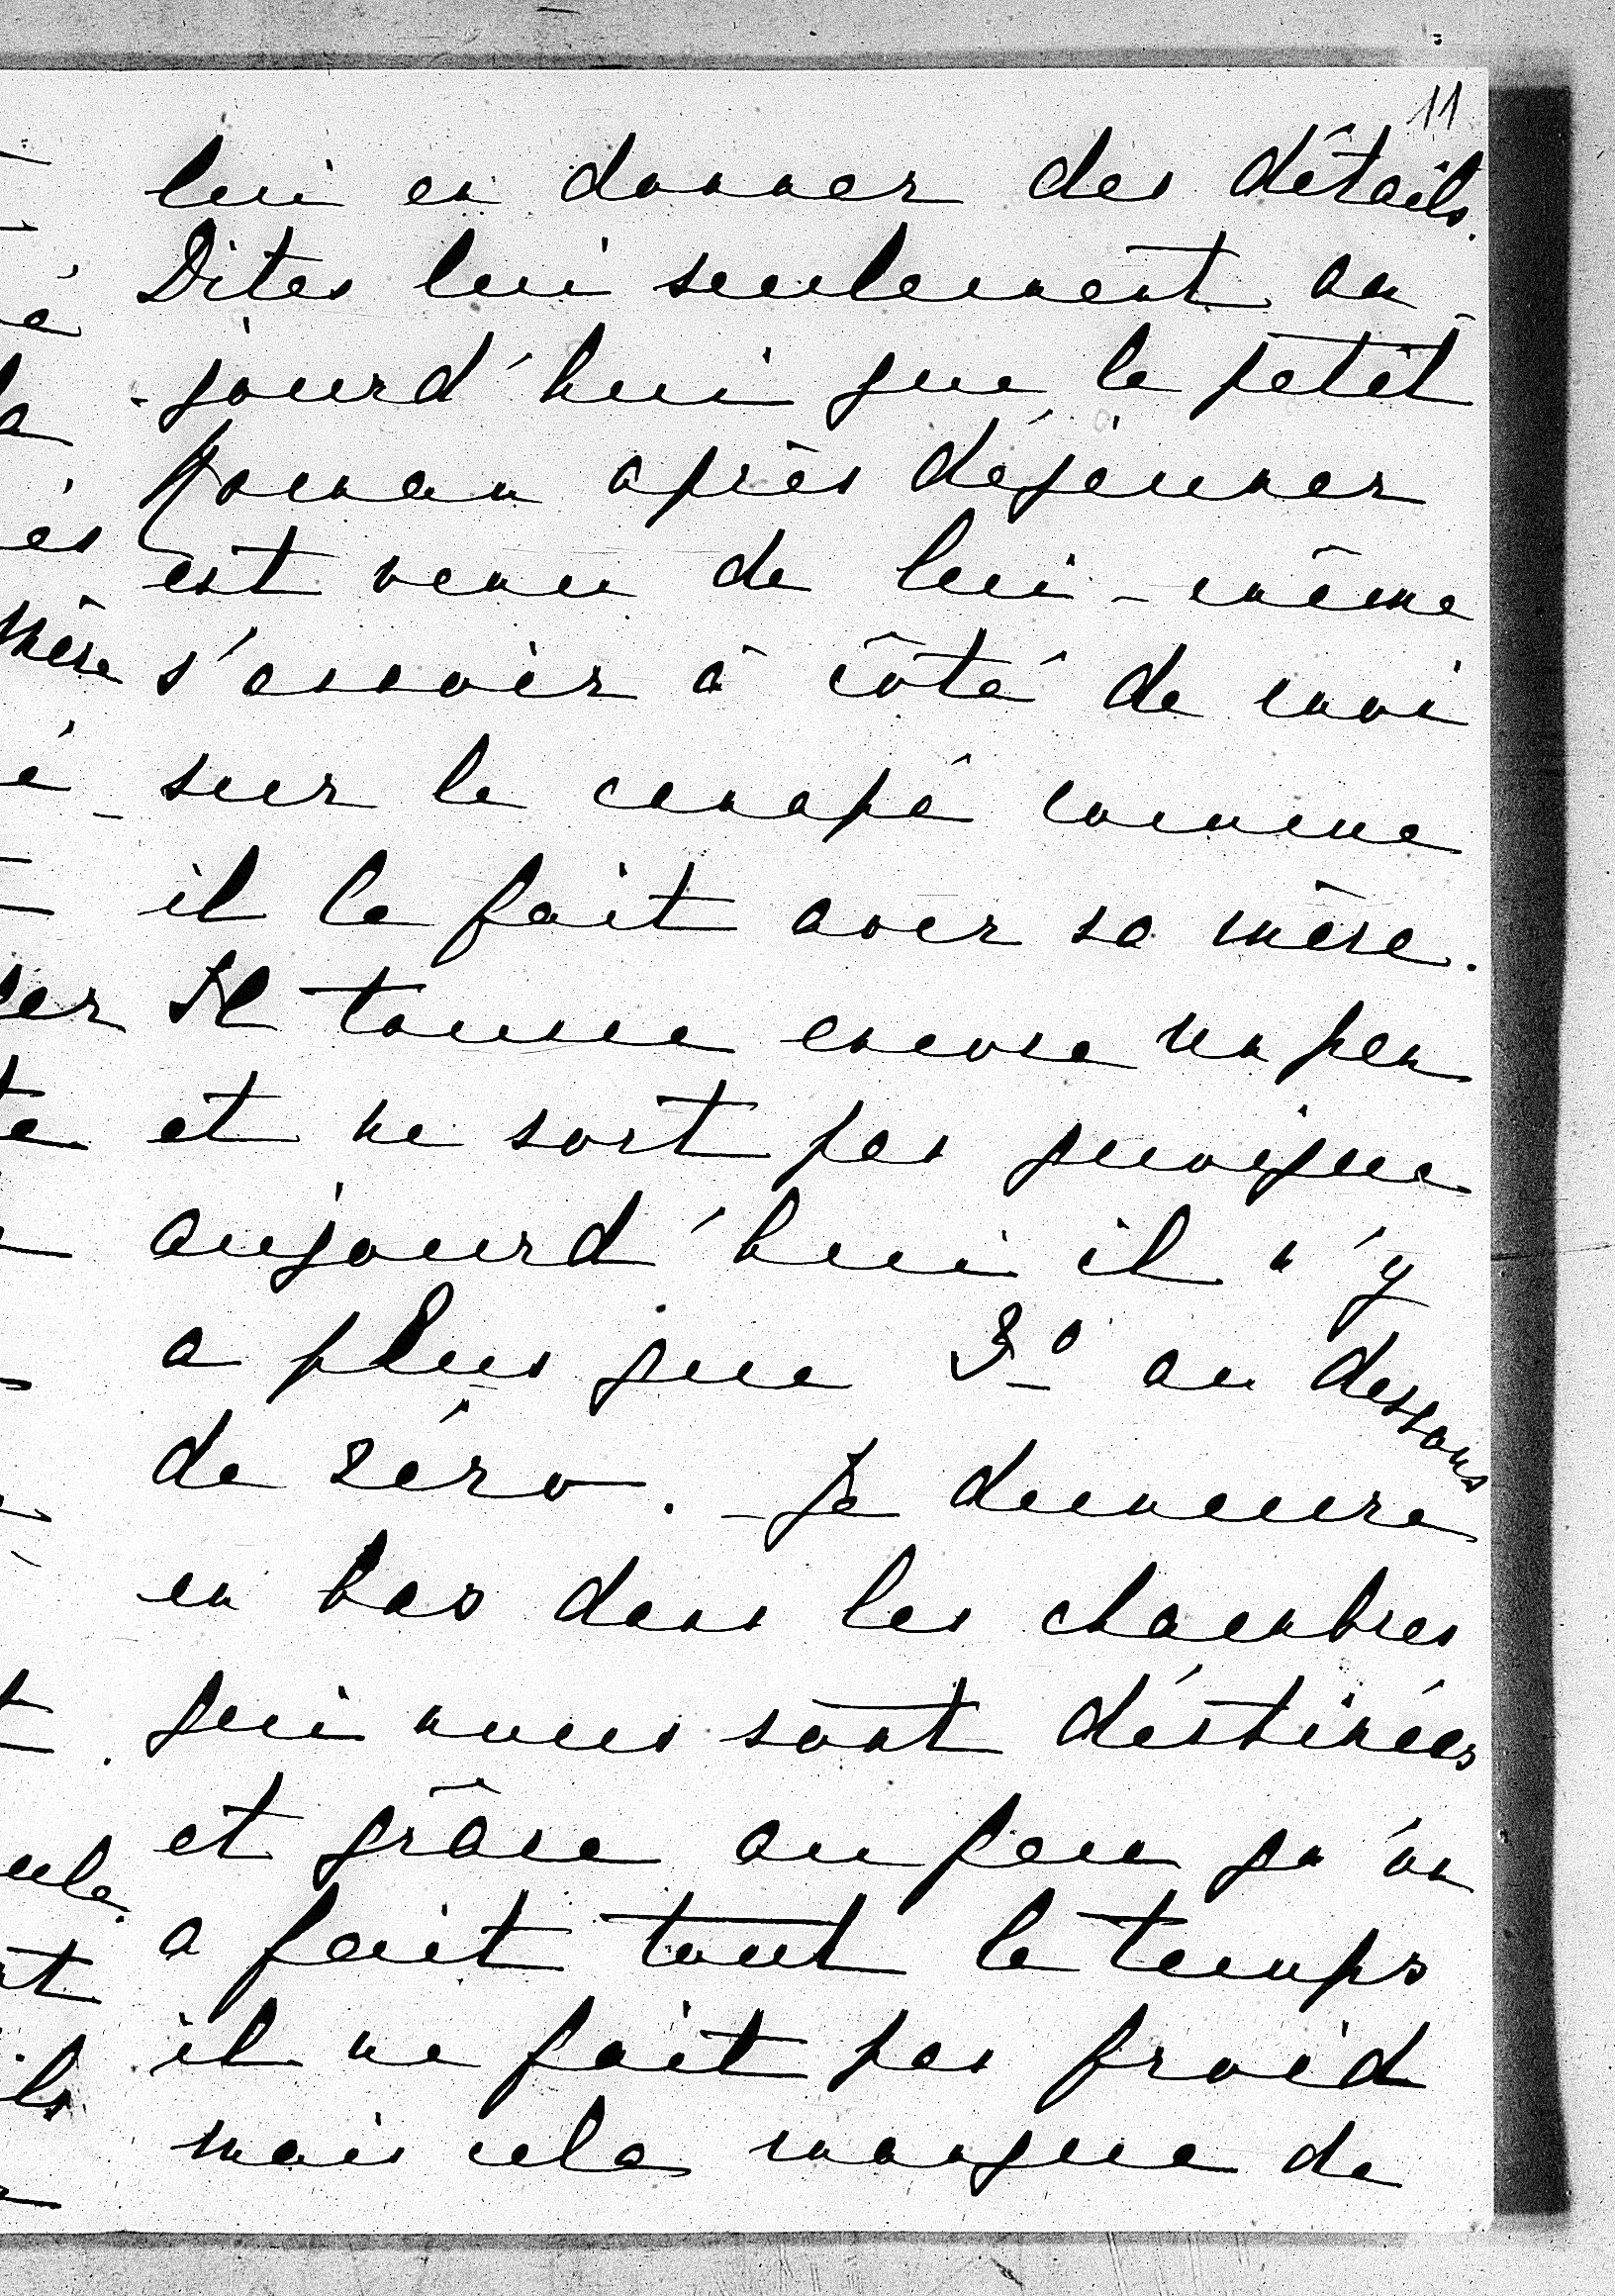 11
lui en donner des détails.
Dites lui seulement au-
-jourd'hui que le petit
Roman après déjeuner
est venu de lui-même
s'assoir à côté de moi
sur le canapé comme
il le fait avec sa mère.
Il tousse encore un peu
et ne sort pas quoique
aujourd'hui il n'y
a plus que 3° au dessous
de zéro. - Je demeure
en bas dans les chambres
qui nous sont déstinées
et grâce au feu qu'on
a fait tout le temps
il ne fait pas froid
mais cela manque de